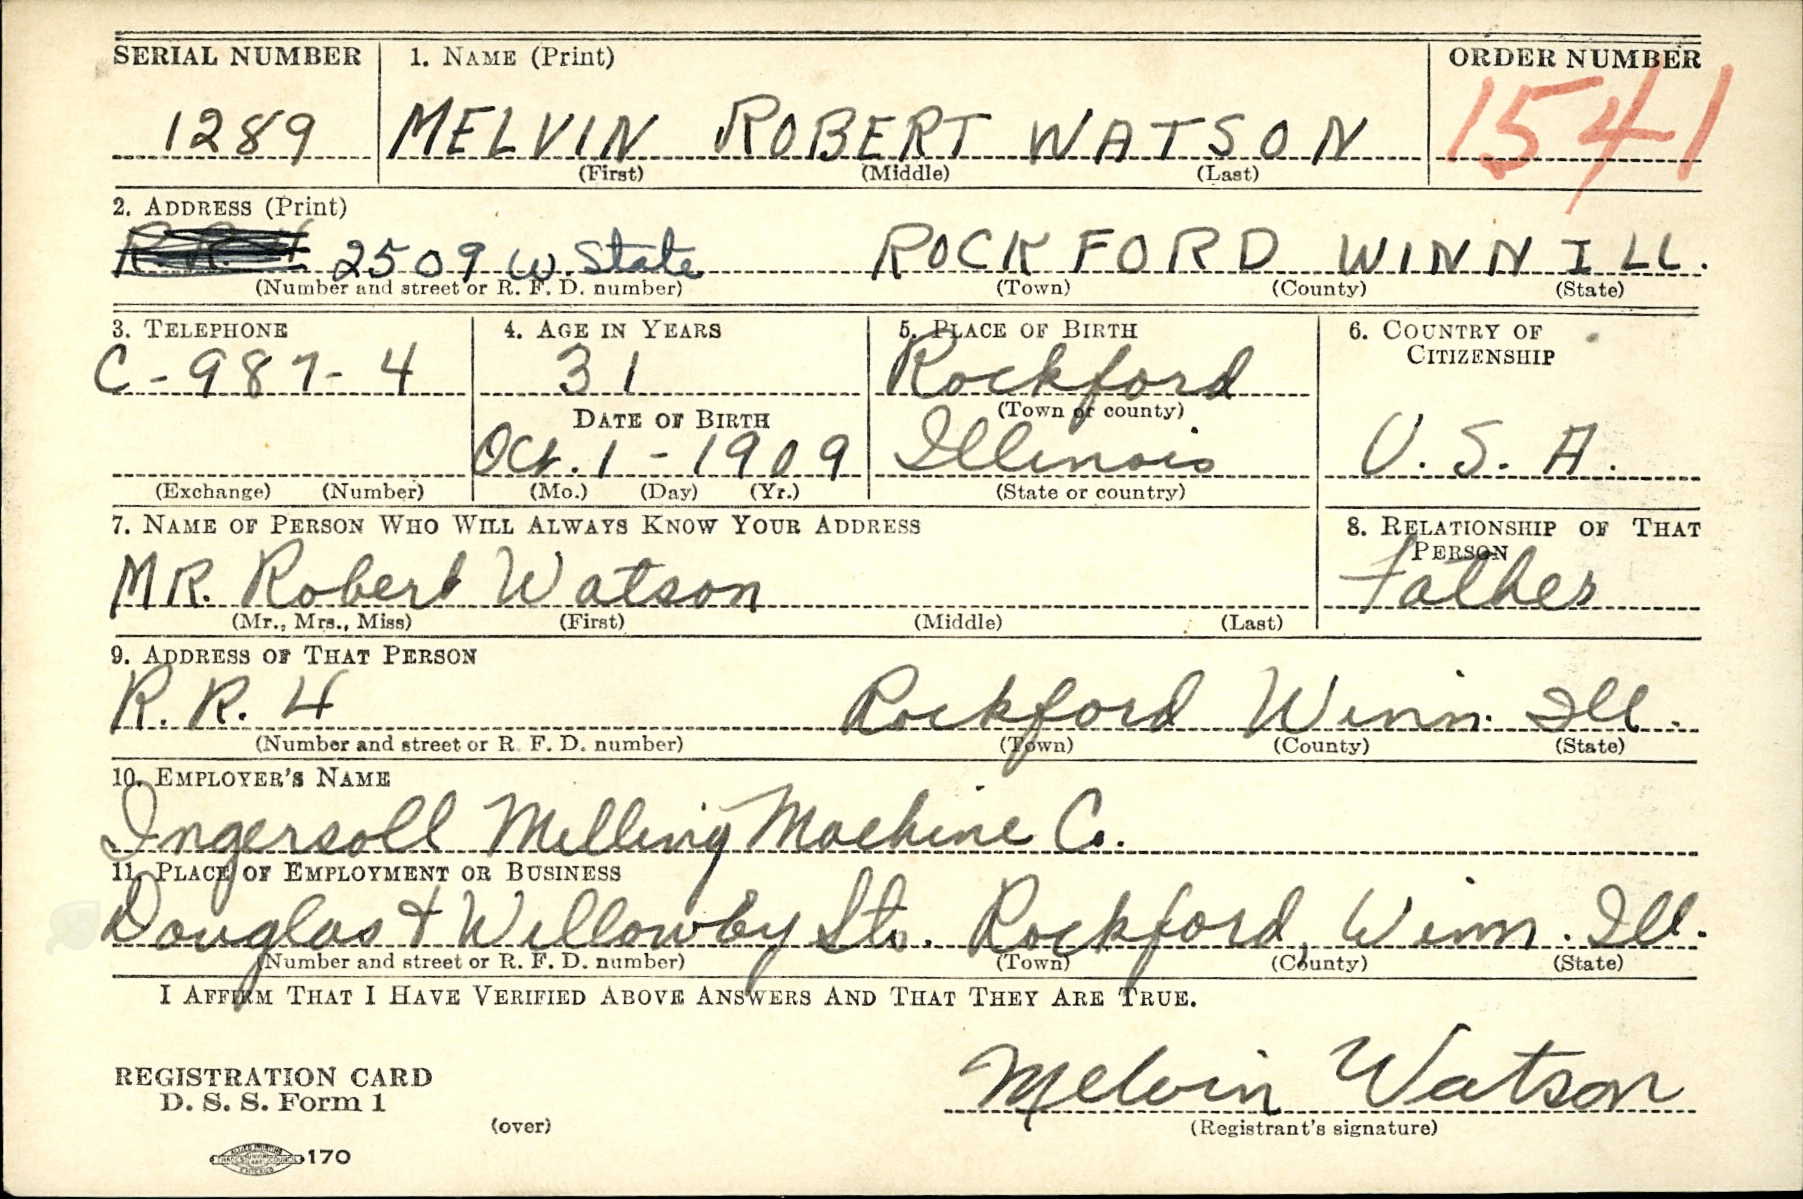 SERIAL NUMBER 1. NAME (Print) ORDER NUMBER
1289 MELVIN ROBERT WATSON 1541
(First) (Middle) (Last)
2. ADDRESS (Print)
R.R. 4 2509 W. State ROCKFORD WINN ILL.
(Number and street or R. F. D. number) (Town) (County) (State)
3. TELEPHONE 4. AGE IN YEARS 5. PLACE OF BIRTH 6. COUNTRY OF CITIZENSHIP
C-987-4 31 Rockford
DATE OF BIRTH (Town or county)
Oct. 1-1909 Illinois U.S.A.
(Exchange) (Number) (Mo.) (Day) (Yr.) (State or country)
7. NAME OF PERSON WHO WILL ALWAYS KNOW YOUR ADDRESS 8. RELATIONSHIP OF THAT PERSON
MR. Robert Watson Father
(Mr., Mrs., Miss) (First) (Middle) (Last)
9. ADDRESS OF THAT PERSON
R. R. 4 Rockford Winn. Ill.
(Number and street or R. F. D. number) (Town) (County) (State)
10. EMPLOYER'S NAME
Ingersoll Milling Machine Co.
11. PLACE OF EMPLOYMENT OR BUSINESS
Douglas + Willowby Sts. Rockford, Winn. Ill.
(Number and street or R. F. D. number) (Town) (County) (State)
I AFFIRM THAT I HAVE VERIFIED ABOVE ANSWERS AND THAT THEY ARE TRUE.
REGISTRATION CARD
D. S. S. Form 1
Melvin Watson
(over) (Registrant's signature)
170